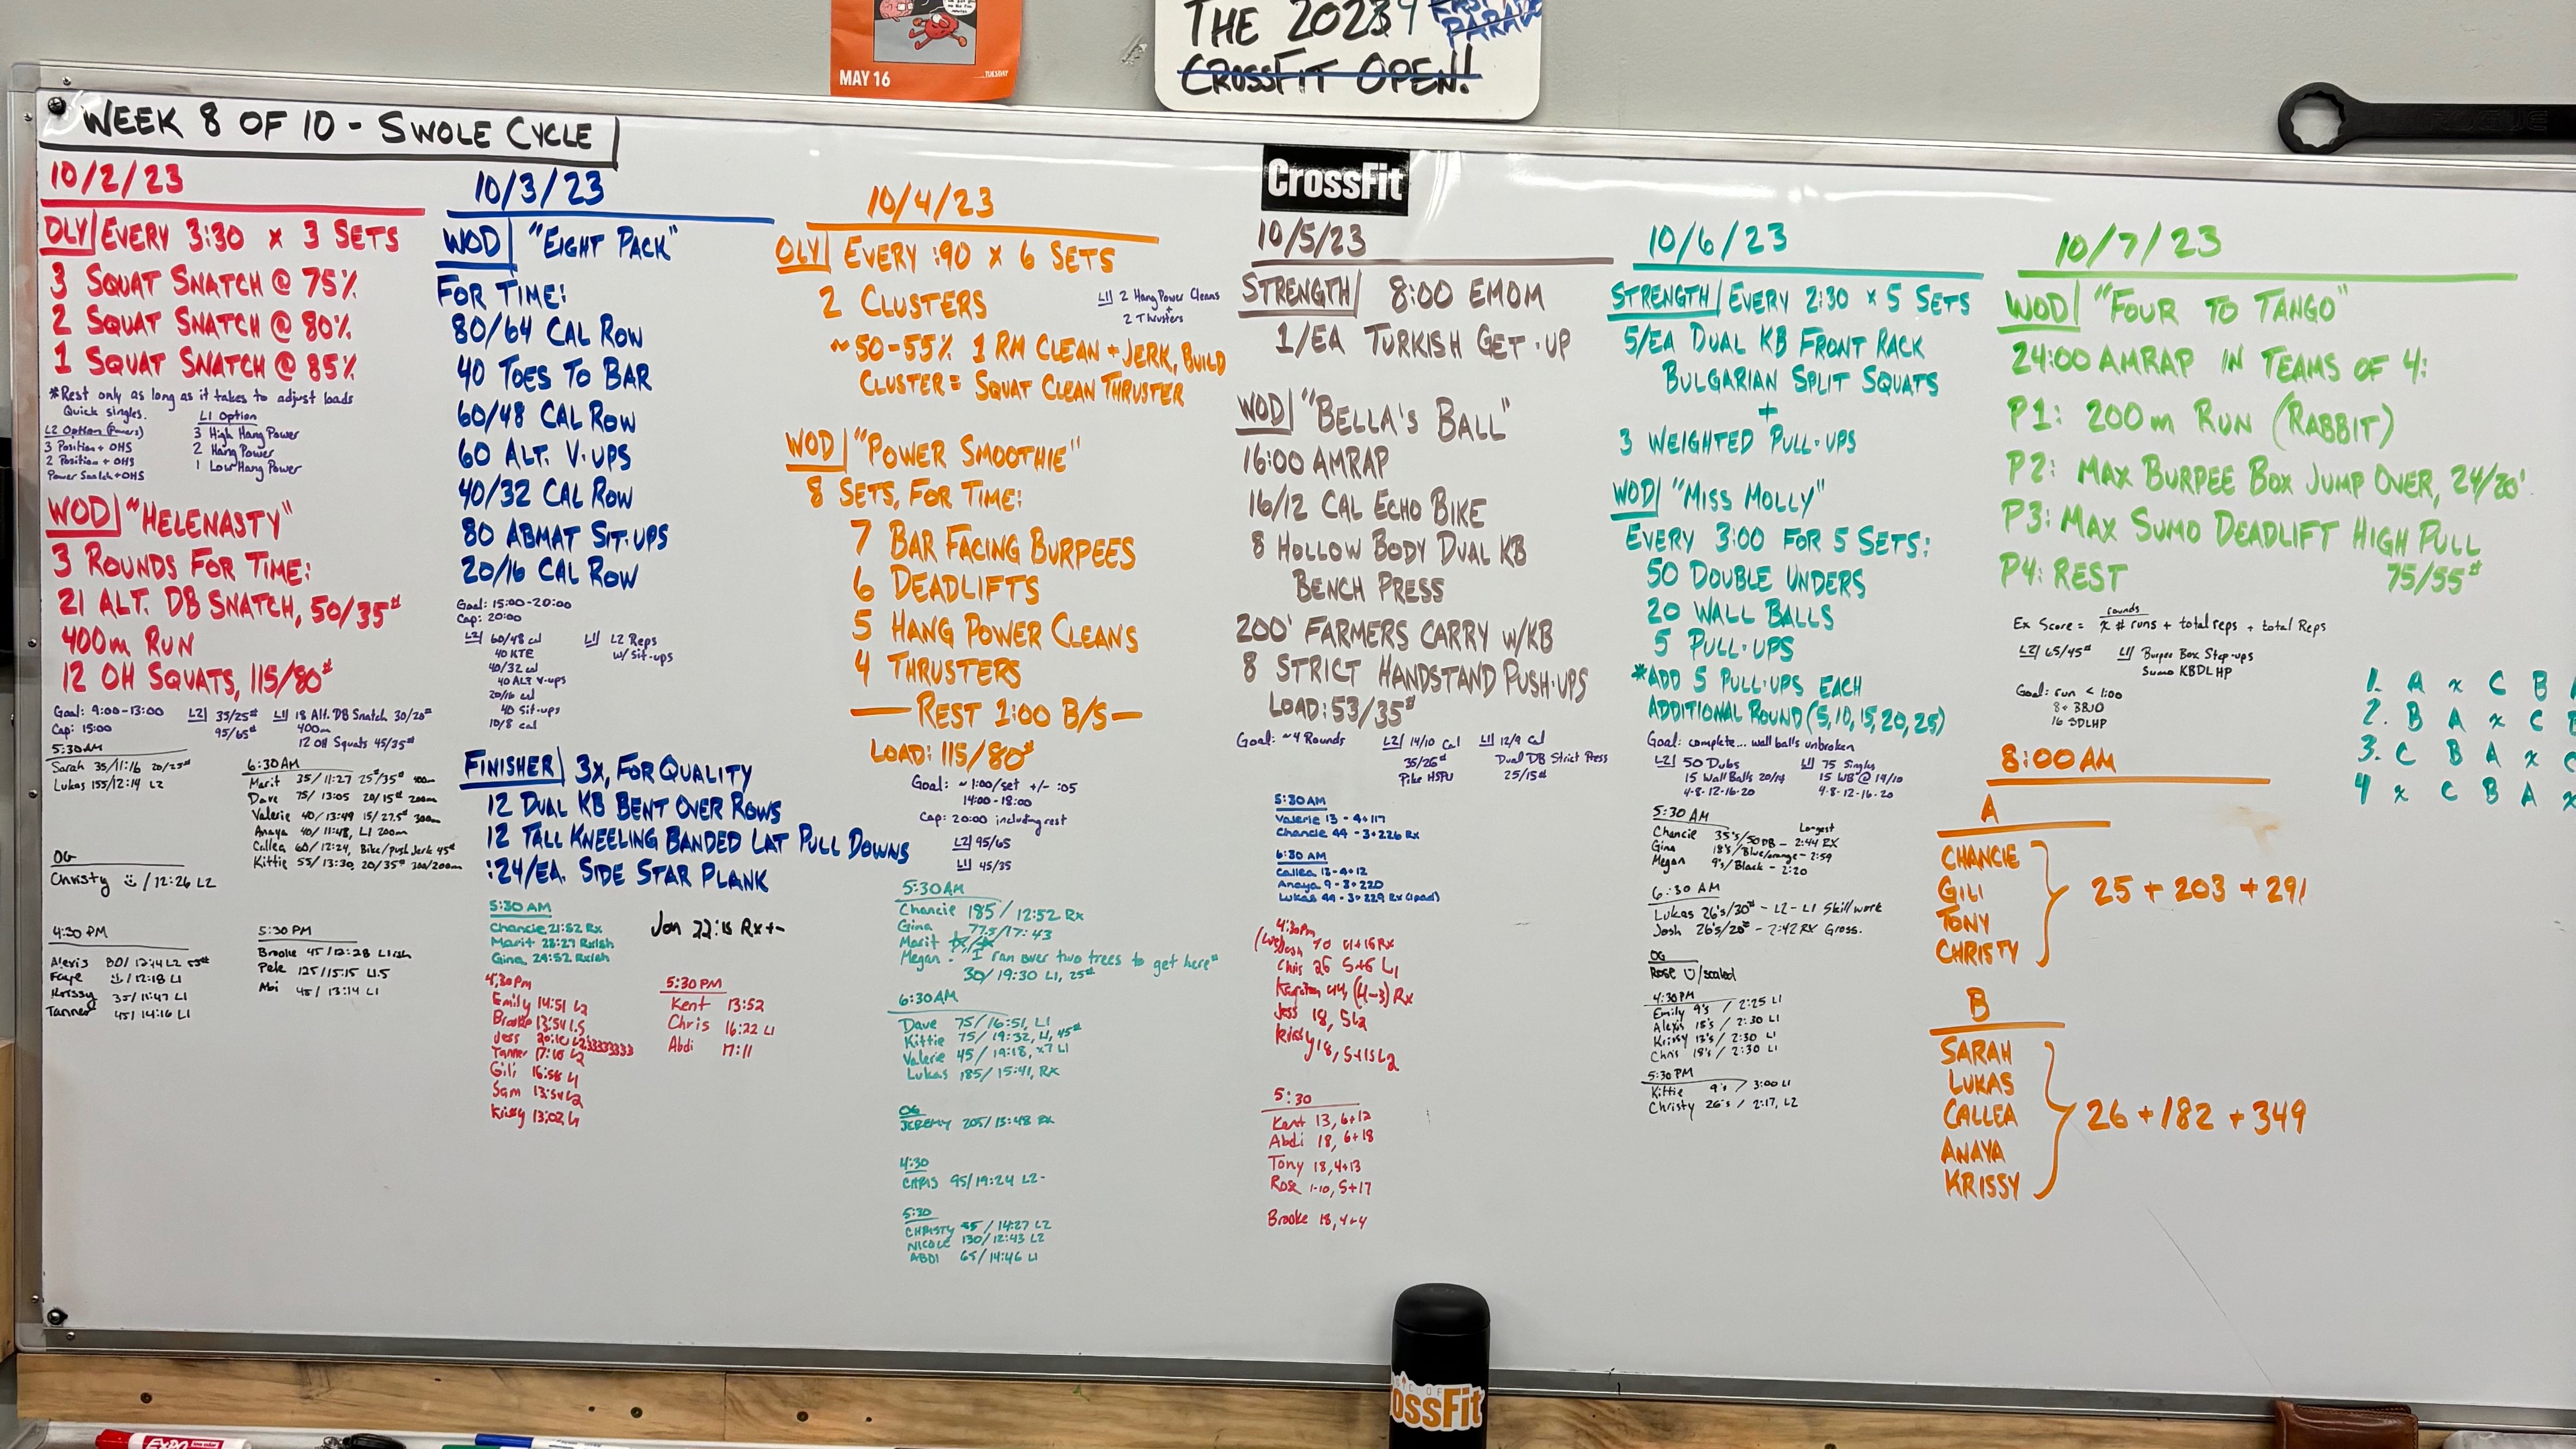 MAY 16
...TUESDAY
THE 20234
CROSSFIT OPEN!
WEEK 8 OF 10 - SWOLE CYCLE
CROSSFIT
10/2/23
OLY EVERY 3:30 x 3 SETS
3 SQUAT SNATCH @ 75%
2 SQUAT SNATCH @ 80%
1 SQUAT SNATCH @ 85%
*Rest only as long as it takes to adjust loads
Quick singles.
L2 Option (Powers)
3 Position + OHS
2 Position + OHS
Power Snatch + OHS
L1 Option
3 High Hang Power
2 Hang Power
1 Low Hang Power
WOD "HELENASTY"
3 ROUNDS FOR TIME:
21 ALT. DB SNATCH, 50/35#
400m RUN
12 OH SQUATS, 115/80#
Goal: 9:00-13:00
Cap: 15:00
L2 35/25#
95/65#
L1 18 Alt. DB Snatch 30/20#
400m
12 OH Squats 45/35#
5:30AM
Sarah 35/11:16 20/25#
Lukas 155/12:14 L2
6:30AM
Marit 35/11:27 25#/35# 400m
Dave 75/13:05 20/15# 200m
Valerie 40/13:49 15/27.5# 300m
Anaya 40/11:48, L1 200m
Callea 60/12:24, Bike/push Jerk 45#
Kittie 55/13:30, 20/35# 300/200m
OG
Christy /12:26 L2
4:30 PM
Alexis 80/12:14 L2 55#
Faye /12:18 L1
Krissy 35/11:47 L1
Tanner 45/14:16 L1
5:30 PM
Brooke 45/12:28 L1
Pele 125/15:15 L1.5
Abi 45/13:14 L1
10/3/23
WOD "EIGHT PACK"
FOR TIME:
80/64 CAL ROW
40 TOES TO BAR
60/48 CAL ROW
60 ALT. V-UPS
40/32 CAL ROW
80 ABMAT SIT-UPS
20/16 CAL ROW
Goal: 15:00-20:00
Cap: 20:00
L2 60/48 cal
40 KTE
40/32 cal
40 ALT V-ups
20/16 cal
40 Sit-ups
10/8 cal
L1 L2 Reps
w/ Sit-ups
FINISHER 3x, FOR QUALITY
12 DUAL KB BENT OVER ROWS
12 TALL KNEELING BANDED LAT PULL DOWNS
:24/EA. SIDE STAR PLANK
5:30 AM
Chancie 21:52 Rx
Marit 28:27 Rxish
Gina 24:52 Rxish
Jon 22:15 Rx+-
4:30pm
Emily 14:51 L2
Brooke 13:54 1.5
Jess 20:10 L233333333
Tanner 17:10 L2
Gili 16:56 L1
Sam 13:54 L2
Krissy 13:02 L1
5:30 PM
Kent 13:52
Chris 16:22 L1
Abdi 17:11
10/4/23
OLY EVERY :90 x 6 SETS
2 CLUSTERS
L1 2 Hang Power Cleans
+
2 Thrusters
~50-55% 1 RM CLEAN + JERK, BUILD
CLUSTER = SQUAT CLEAN THRUSTER
WOD "POWER SMOOTHIE"
8 SETS, FOR TIME:
7 BAR FACING BURPEES
6 DEADLIFTS
5 HANG POWER CLEANS
4 THRUSTERS
— REST 1:00 B/S —
LOAD: 115/80#
Goal: ~1:00/set +/- :05
14:00-18:00
Cap: 20:00 including rest
L2 95/65
L1 45/35
5:30AM
Chancie 185/12:52 Rx
Gina 77.5/17:43
Marit
Megan: "I ran over two trees to get here"
30/19:30 L1, 25#
6:30AM
Dave 75/16:51, L1
Kittie 75/19:32, L1, 45#
Valerie 45/19:18, x7 L1
Lukas 185/15:41, RX
OG
JEREMY 205/13:48 RX
4:30
CHRIS 95/19:24 L2-
5:30
CHRISTY 85/14:27 L2
NICOLE 130/12:43 L2
ABDI 65/14:46 L1
10/5/23
STRENGTH 8:00 EMOM
1/EA TURKISH GET-UP
WOD "BELLA'S BALL"
16:00 AMRAP
16/12 CAL ECHO BIKE
8 HOLLOW BODY DUAL KB
BENCH PRESS
200' FARMERS CARRY W/KB
8 STRICT HANDSTAND PUSH-UPS
LOAD: 53/35#
Goal: ~4 Rounds
L2 14/10 Cal
35/26#
Pike HSPU
L1 12/9 Cal
Dual DB Strict Press
25/15#
5:30 AM
Valerie 13 - 4+117
Chancie 44 - 3+226 Rx
6:30 AM
Callea 13-4+12
Anaya 9-3+220
Lukas 44-3+229 Rx
4:30pm
Josh 70 4+16 Rx
Chris 26 5+6 L1
44, (4-3) Rx
Jess 18, 5 L2
Krissy 18, 5+11 L2
5:30
Kent 13, 6+12
Abdi 18, 6+18
Tony 18, 4+13
Rose 1-10, 5+17
Brooke 18, 4+4
10/6/23
STRENGTH EVERY 2:30 x 5 SETS
5/EA DUAL KB FRONT RACK
BULGARIAN SPLIT SQUATS
+
3 WEIGHTED PULL-UPS
WOD "MISS MOLLY"
EVERY 3:00 FOR 5 SETS:
50 DOUBLE UNDERS
20 WALL BALLS
5 PULL-UPS
*ADD 5 PULL-UPS EACH
ADDITIONAL ROUND (5,10,15,20,25)
Goal: complete... wall ball's unbroken
L2 50 Dubs
15 Wall Balls 20/14
4-8-12-16-20
L1 75 Singles
15 WB @ 14/10
4-8-12-16-20
5:30 AM
Longest
Chancie 35's/50 DB - 2:44 RX
Gina 18's/Blue/orange - 2:59
Megan 9's/Black - 2:20
6:30 AM
Lukas 26's/30# - L2-L1 Skill work
Josh 26's/20# - 2:42 RX Gross.
OG
Rose /scaled
4:30PM
Emily 9's / 2:25 L1
Alexis 18's / 2:30 L1
Krissy 13's / 2:30 L1
Chris 18's / 2:30 L1
5:30 PM
Kittie 9's / 3:00 L1
Christy 26's / 2:17, L2
10/7/23
WOD "FOUR TO TANGO"
24:00 AMRAP IN TEAMS OF 4:
P1: 200m RUN (RABBIT)
P2: MAX BURPEE BOX JUMP OVER, 24/20"
P3: MAX SUMO DEADLIFT HIGH PULL
75/55#
P4: REST
rounds
Ex Score = x # runs + total reps + total Reps
L2 65/45#
L1 Burpee Box Step-ups
Sumo KBDLHP
Goal: run < 1:00
8+ BBJO
16 SDLHP
1. A x C B
2. B A x C
3. C B A x
4 x C B A
8:00 AM
A
CHANCIE
GILI
TONY
CHRISTY
25 + 203 + 291
B
SARAH
LUKAS
CALLEA
ANAYA
KRISSY
26 + 182 + 349
ROGUE
CrossFit
EXPO